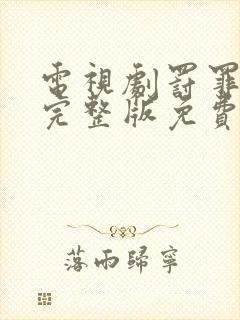 電視劇罰罪
完整版免費
落雨歸寧